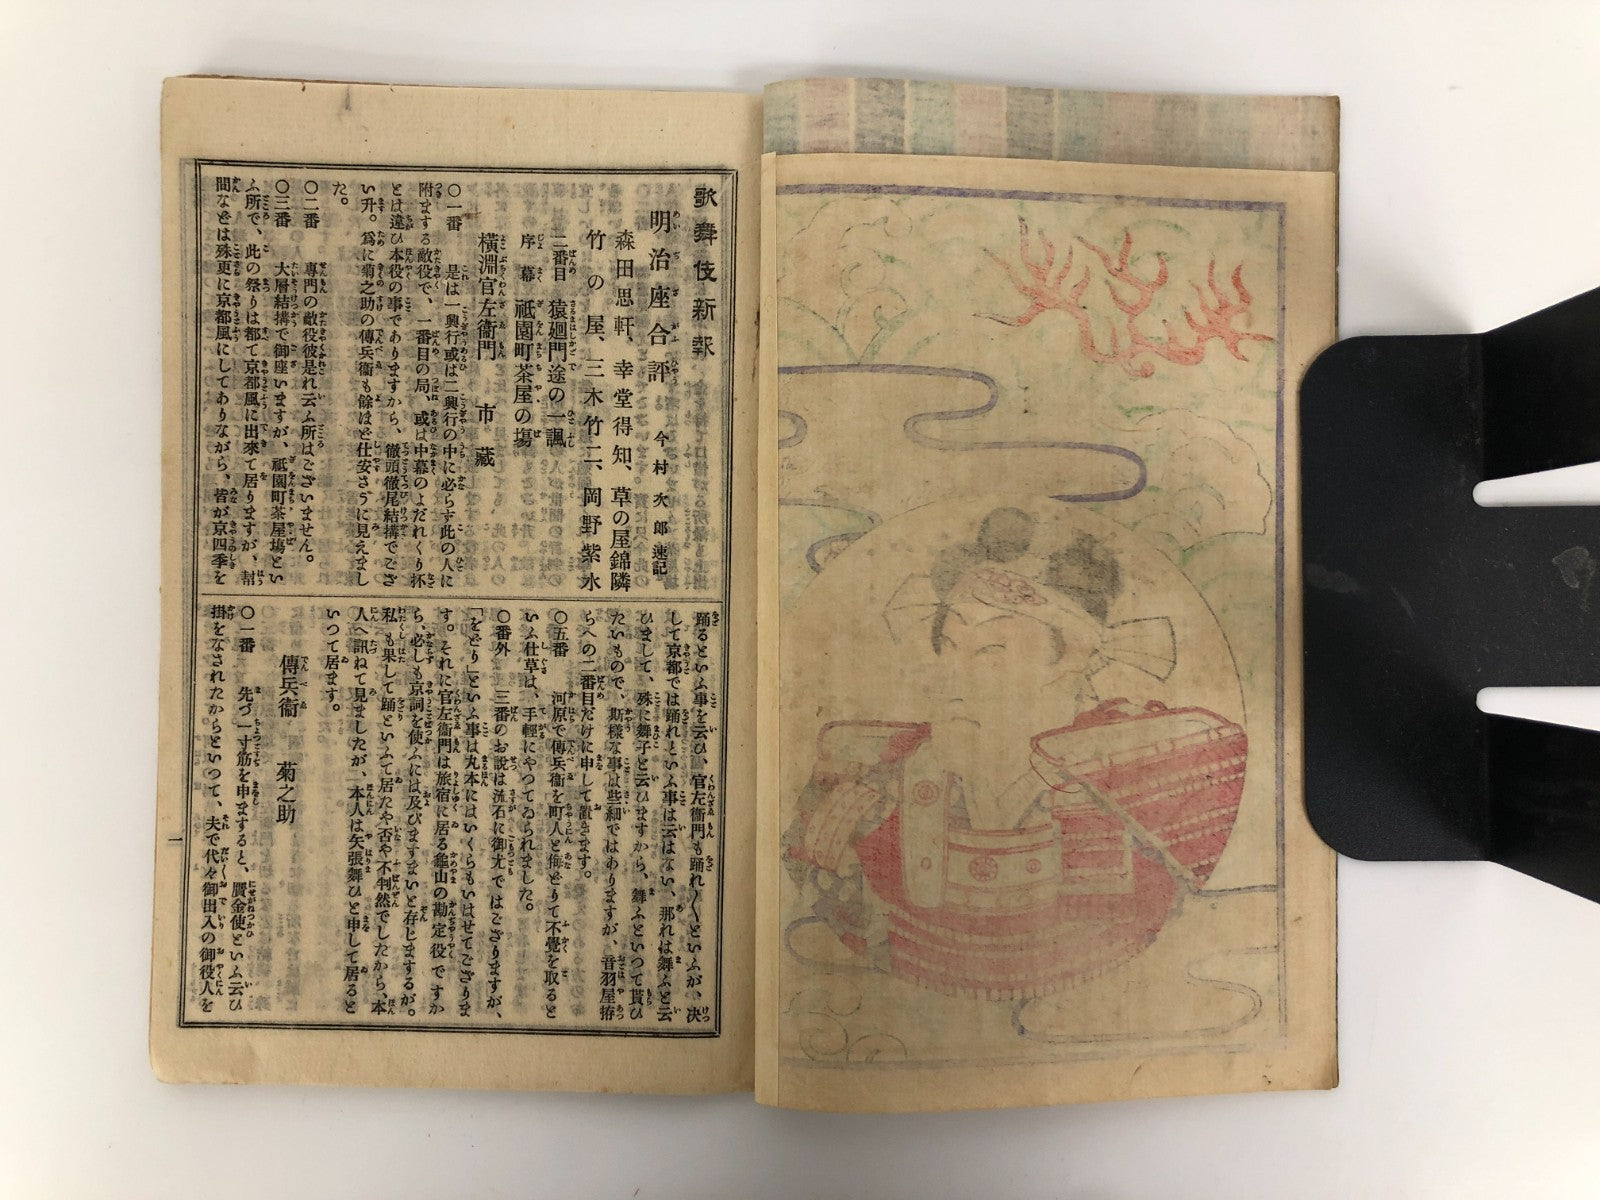 歌舞伎新報
明治座合評 今村次郎速記
森田思軒、幸堂得知、草の屋錦隣
竹の屋、三木竹二、岡野紫水
二番目 猿廻門途の一諷
序幕 祇園町茶屋の塲
橫淵官左衞門 市藏
〇一番 是は一興行或は二興行の中に必らず此の人に
附まする敵役で、一番目の局、或は中幕のよだれくり抔
とは違ひ本役の事でありますから、徹頭徹尾結搆でござ
い升。爲に菊之助の傳兵衞も餘ほど仕安さうに見えまし
た。
〇二番 專門の敵役彼是れ云ふ所はございません。
〇三番 大層結搆で御座いますが、祇園町茶屋塲とい
ふ所で、此の祭りは都て京都風に出來て居りますが、幇
間などは殊更に京都風にしてありながら、皆が京四季を
踊るといふ事を云ひ、官左衞門も踊れ〱といふが、決
して京都では踊れといふ事は云はない、那れは舞ふと云
ひまして、殊に舞子と云ひますから、舞ふといつて貰ひ
たいもので、斯樣な事は些細ではありますが、音羽屋拵
らへの二番目だけに申して置きます。
〇五番 河原で傳兵衞を町人と侮どりて不覺を取ると
いふ仕草は、手輕にやつてゐられました。
〇番外 三番のお說は流石に御尤ではござりますが、
「をどり」といふ事は丸本にはいくらもいはせてござりま
す。それに官左衞門は旅宿に居る龜山の勘定役ですか
ら、必しも京詞を使ふには及びますまいと存じまするが。
私も果して踊といふて居たや否や不判然でしたから、本
人へ訊ねて見ましたが、本人は矢張舞ひと申して居ると
いつて居ます。
傳兵衞 菊之助
〇一番 先づ一寸筋を申ますると、贋金使といふ云ひ
掛をなされたからといつて、夫で代々御出入の御役人を
一